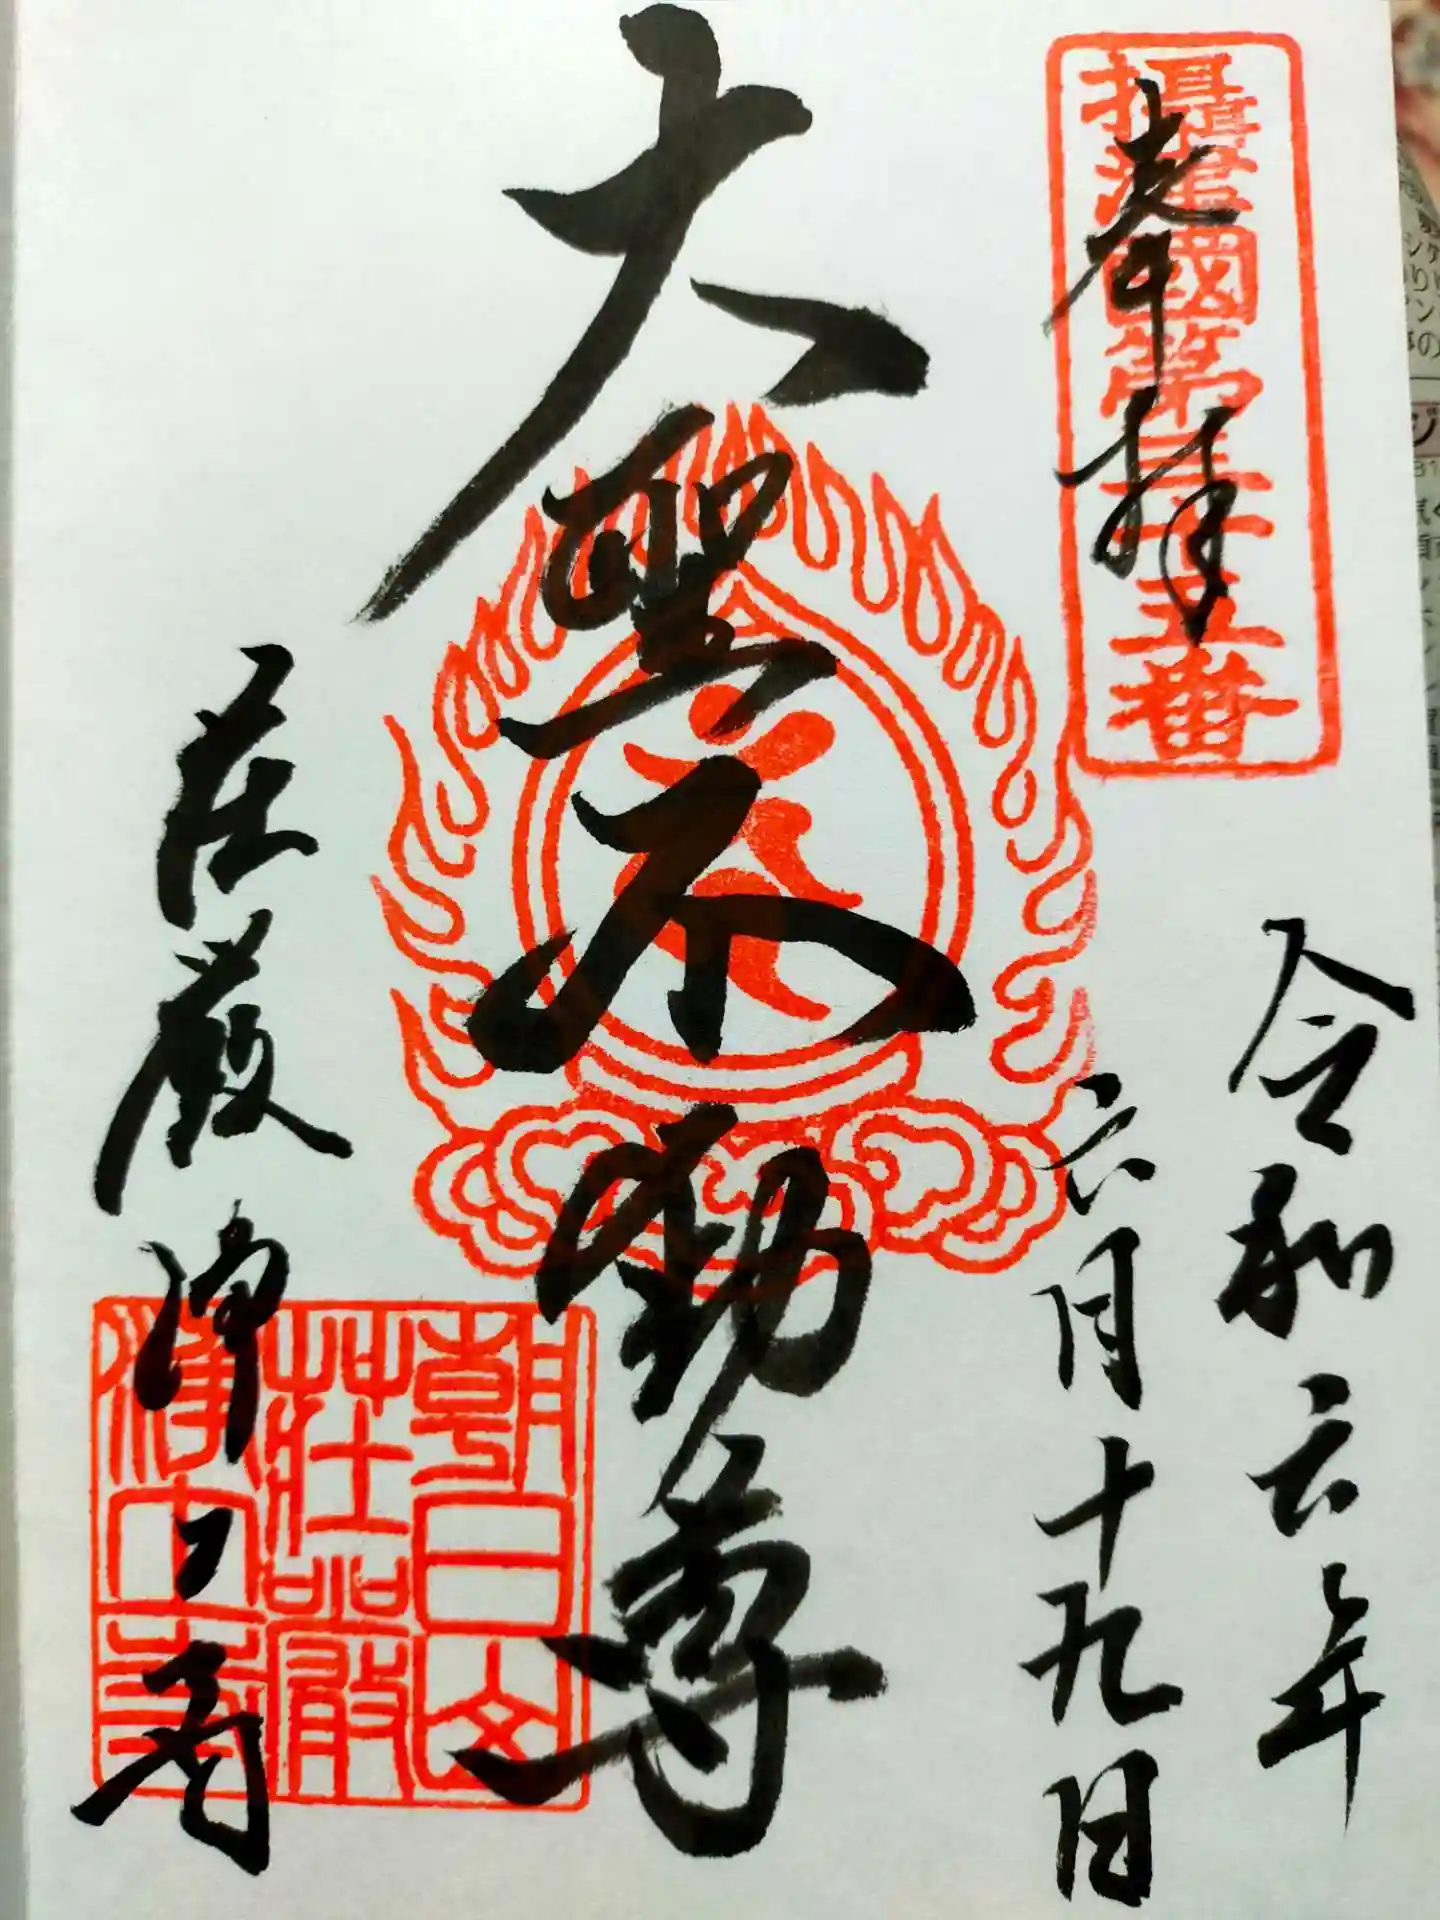 攝津國第三十五番
奉拝
令和六年
六月十九日
大聖不動尊
荘厳浄土寺
朝日山
莊嚴
浄土寺